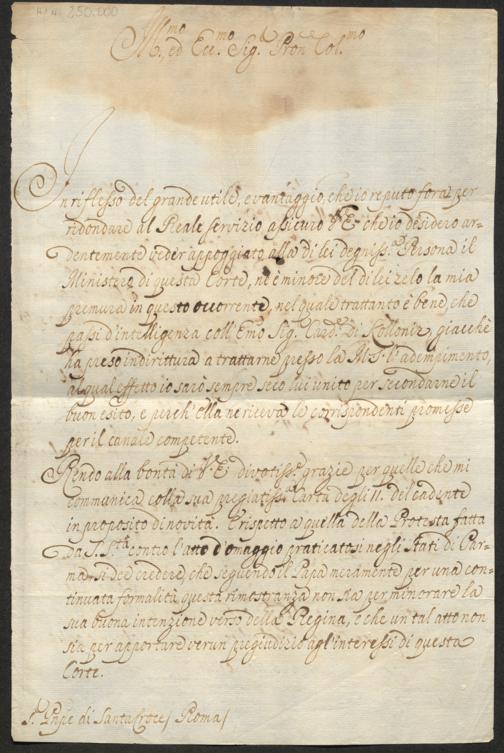 250.000
Ill.mo ed Ecc.mo Sig.r Pron Col.mo
In riflesso del grande utile, e vantaggio, che io reputo fora per
ridondare al Reale servizio assicuro V.E. che io desidero ar-
dentemente veder appoggiato alla di lei degniss.a Persona il
Ministero di questa Corte, nè è minore del di lei zelo la mia
premura in questo occorrente, nel quale trattanto è bene che
passi d'intelligenza coll'Emo Sig. Card. di Kolloniz, giacchè
ha preso indirittura a trattarne presso la M.S. l'adempimento,
al qual effetto io sarò sempre seco lui unito per secondarne il
buon esito, e perch'ella ne riceva le corrispondenti promesse
per il canale competente.
Rendo alla bontà di V.E. divotiss.e grazie per quelle che mi
communica colla sua pregiatiss.a Carta degli 11. del cadente
in proposito di novità. E rispetto a quella della Protesta fatta
da S. S.tà contro l'atto d'omaggio praticatosi negli Stati di Par-
ma, si dee credere, che seguendo il Papa meramente per una con-
tinuata formalità questa rimostranza non sia per minorare la
sua buona intenzione verso della Regina, e che un tal atto non
sia per apportare verun pregiudizio agl'interessi di questa
Corte.
S.r Pnpe di Santacroce / Roma /